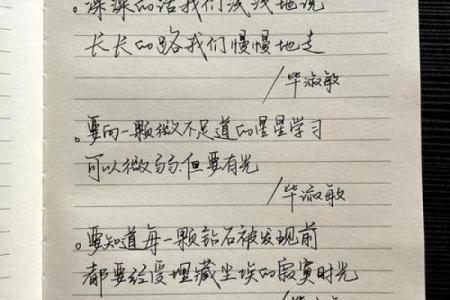 。深深的话我们浅浅地说
长长的路我们慢慢地走
/毕淑敏
。要向一颗微不足道的星星学习
可以微弱.但要有光
/毕淑敏
。要知道每一颗钻石被发现前
都要经受埋藏尘埃的寂寞时光
/毕淑敏